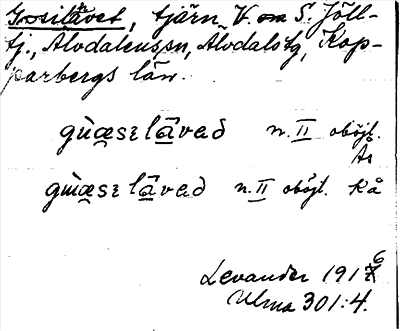 Gosilåvet, tjärn V. om S. Föll-
tj., Älvdalens sn, Älvdals tg, Kop-
parbergs län.
gùæsɛlâvað n. II oböjl.
Ås
gùæsɛlâvað n. II oböjl. Kå
Levander 1916
Ulma 301:4.